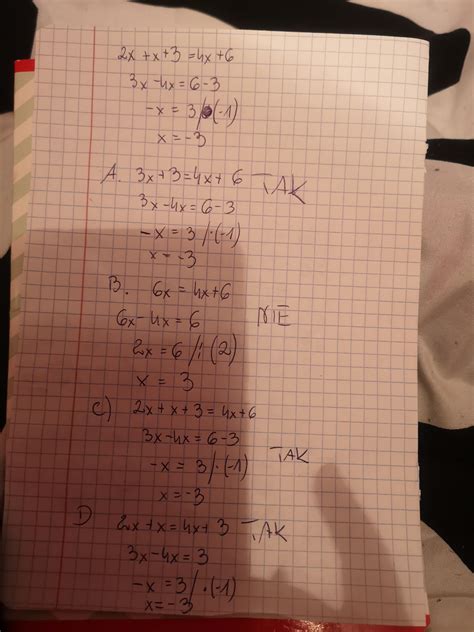 2x+x+3=4x+6
3x-4x=6-3
-x=3/·(-1)
x=-3
A. 3x+3=4x+6 TAK
3x-4x=6-3
-x=3/·(-1)
x=-3
B. 6x=4x+6
6x-4x=6 NIE
2x=6/:(2)
x=3
C) 2x+x+3=4x+6
3x-4x=6-3
-x=3/·(-1) TAK
x=-3
D 2x+x=4x+3 TAK
3x-4x=3
-x=3/·(-1)
x=-3